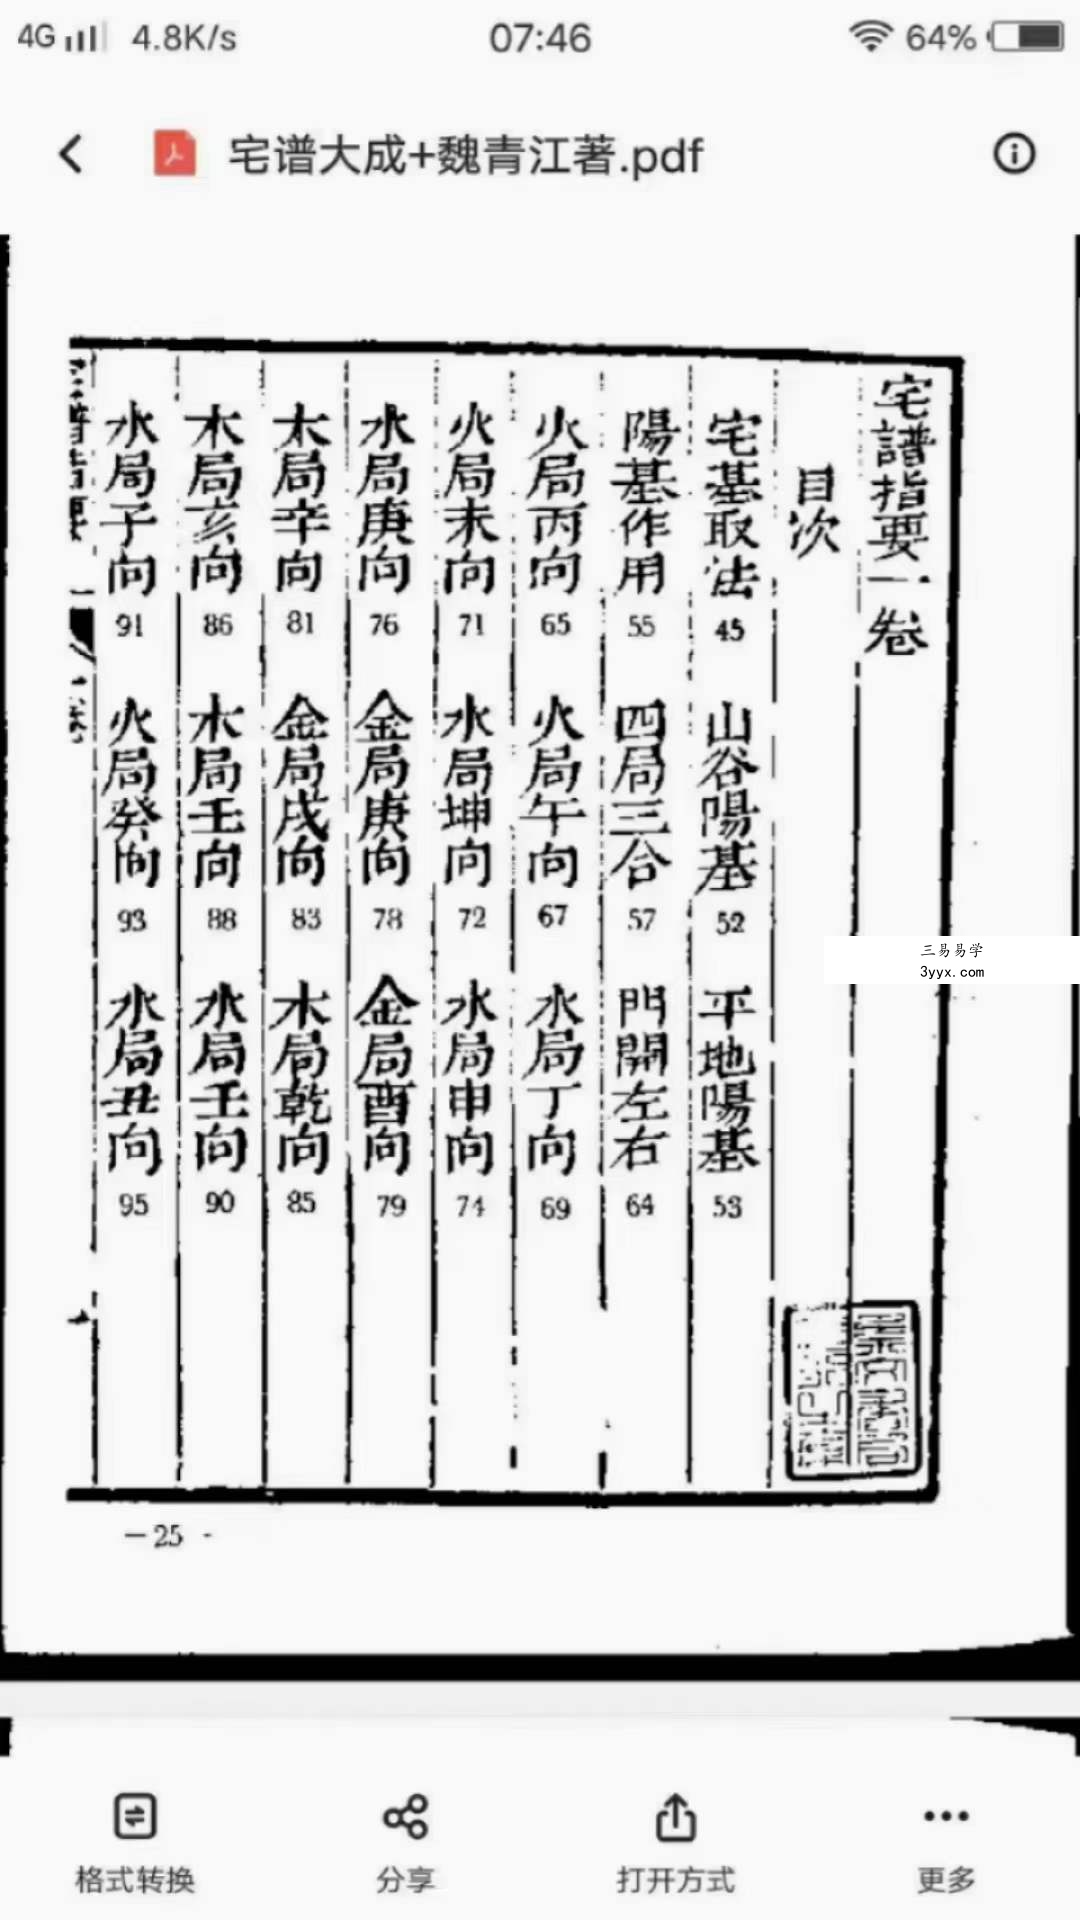 4G 4.8K/s 07:46 64%
宅谱大成+魏青江著.pdf
宅譜指要一卷
目次
宅基取法 45 山谷陽基 52 平地陽基 53
陽基作用 55 四局三合 57 門開左右 64
火局丙向 65 火局午向 67 水局丁向 69
火局未向 71 水局坤向 72 水局申向 74
水局庚向 76 金局庚向 78 金局酉向 79
木局辛向 81 金局戌向 83 木局乾向 85
木局亥向 86 木局壬向 88 水局壬向 90
水局子向 91 火局癸向 93 水局丑向 95
三易易学
3yyx.com
—25 -
格式转换 分享 打开方式 更多